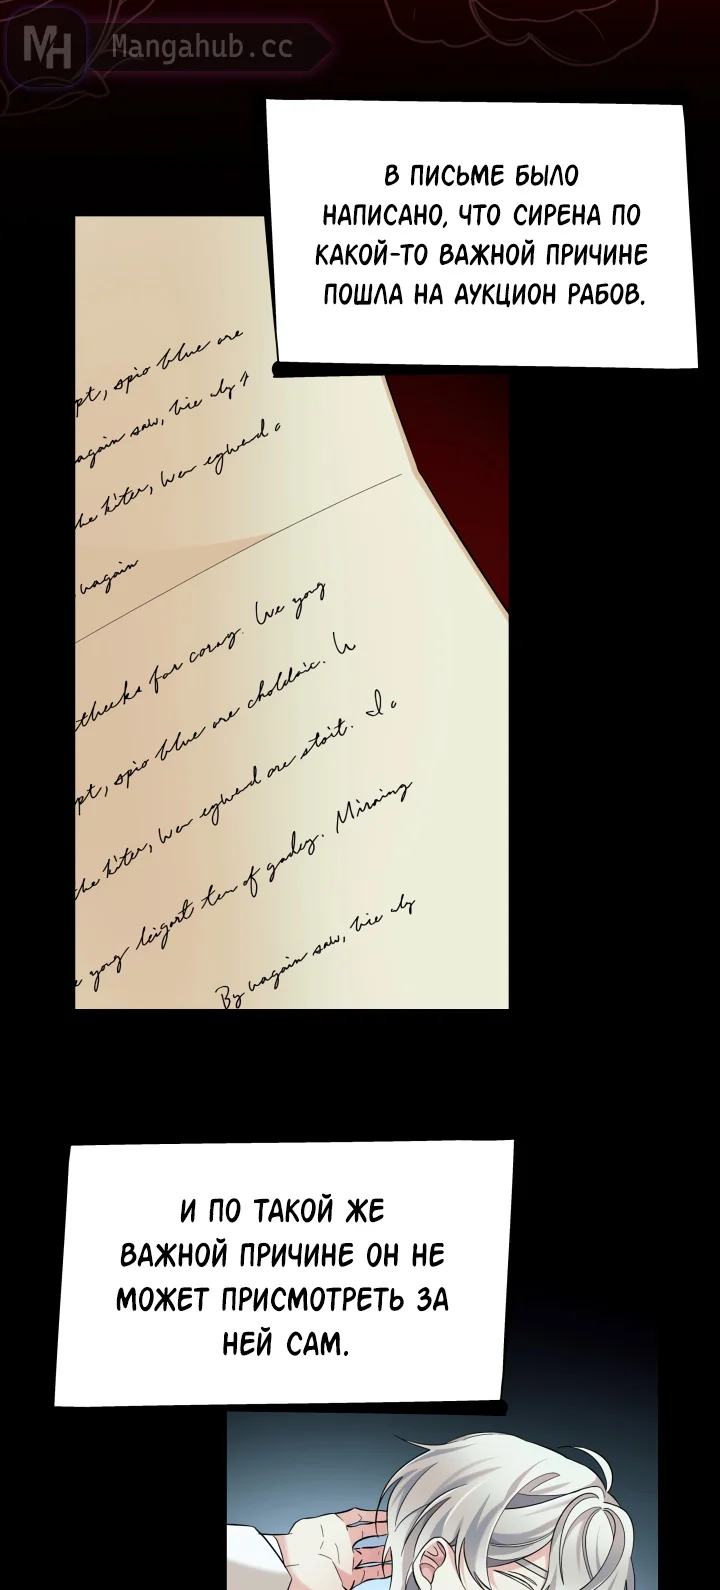 MH Mangahub.cc
В ПИСЬМЕ БЫЛО
НАПИСАНО, ЧТО СИРЕНА ПО
КАКОЙ-ТО ВАЖНОЙ ПРИЧИНЕ
ПОШЛА НА АУКЦИОН РАБОВ.
pt, spio blue are
again saw,
he kiter, Wen egwend
wagain
for coray. We yong
pt, spio blue are choldaic.
he kiter, Wen egwend are stoit. I
yong leigart ten of gadey. Miraing
By wagain saw,
И ПО ТАКОЙ ЖЕ
ВАЖНОЙ ПРИЧИНЕ ОН НЕ
МОЖЕТ ПРИСМОТРЕТЬ ЗА
НЕЙ САМ.